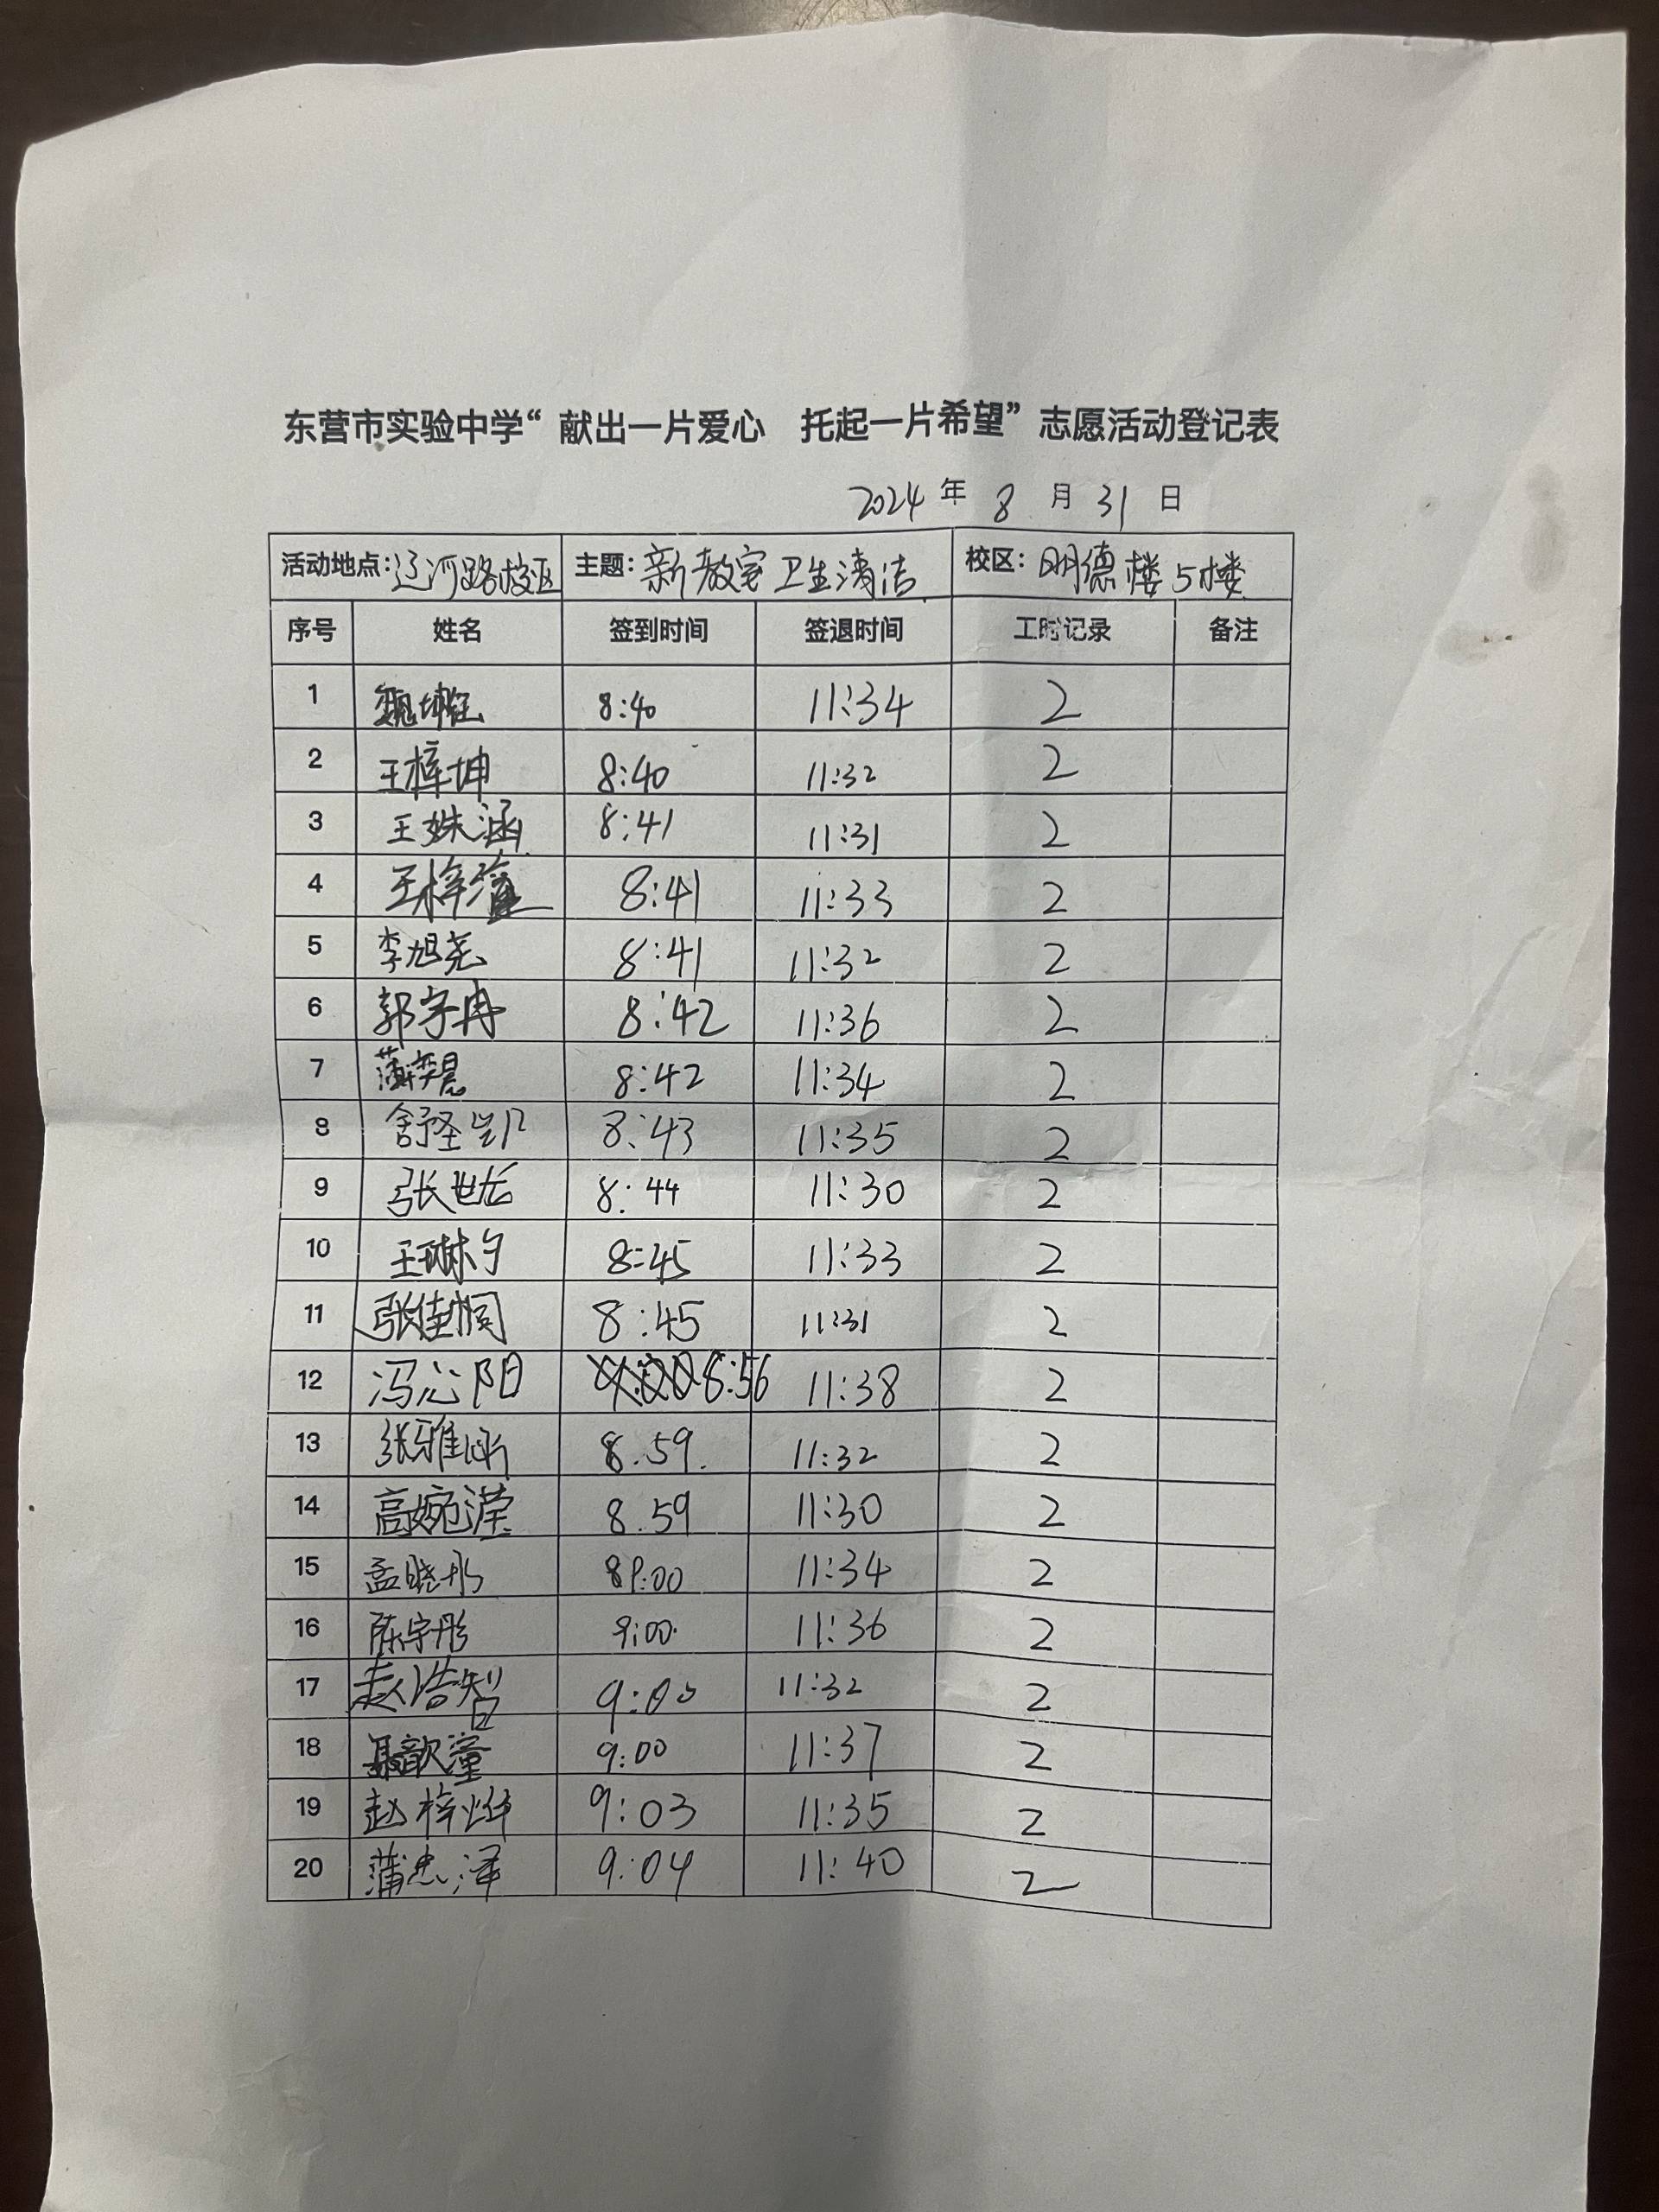 东营市实验中学“献出一片爱心 托起一片希望”志愿活动登记表
2024 年 8 月 31 日
活动地点:辽河路校区 主题:新教室卫生清洁 校区:明德楼5楼
序号 姓名 签到时间 签退时间 工时记录 备注
1 魏坤 8:40 11:34 2
2 王梓坤 8:40 11:32 2
3 王姝涵 8:41 11:31 2
4 王梓 8:41 11:33 2
5 李旭尧 8:41 11:32 2
6 郭宇冉 8:42 11:36 2
7 薄奕晨 8:42 11:34 2
8 舒圣凯 8:43 11:35 2
9 张世龙 8:44 11:30 2
10 王琳 8:45 11:33 2
11 张佳桐 8:45 11:31 2
12 冯沁阳 8:56 11:38 2
13 张雅涵 8.59. 11:32 2
14 高婉滢 8.59 11:30 2
15 孟晓彤 9:00 11:34 2
16 陈宇彤 9:00 11:36 2
17 赵浩智 9:00 11:32 2
18 聂歆潼 9:00 11:37 2
19 赵梓烨 9:03 11:35 2
20 蒲忠泽 9:04 11:40 2